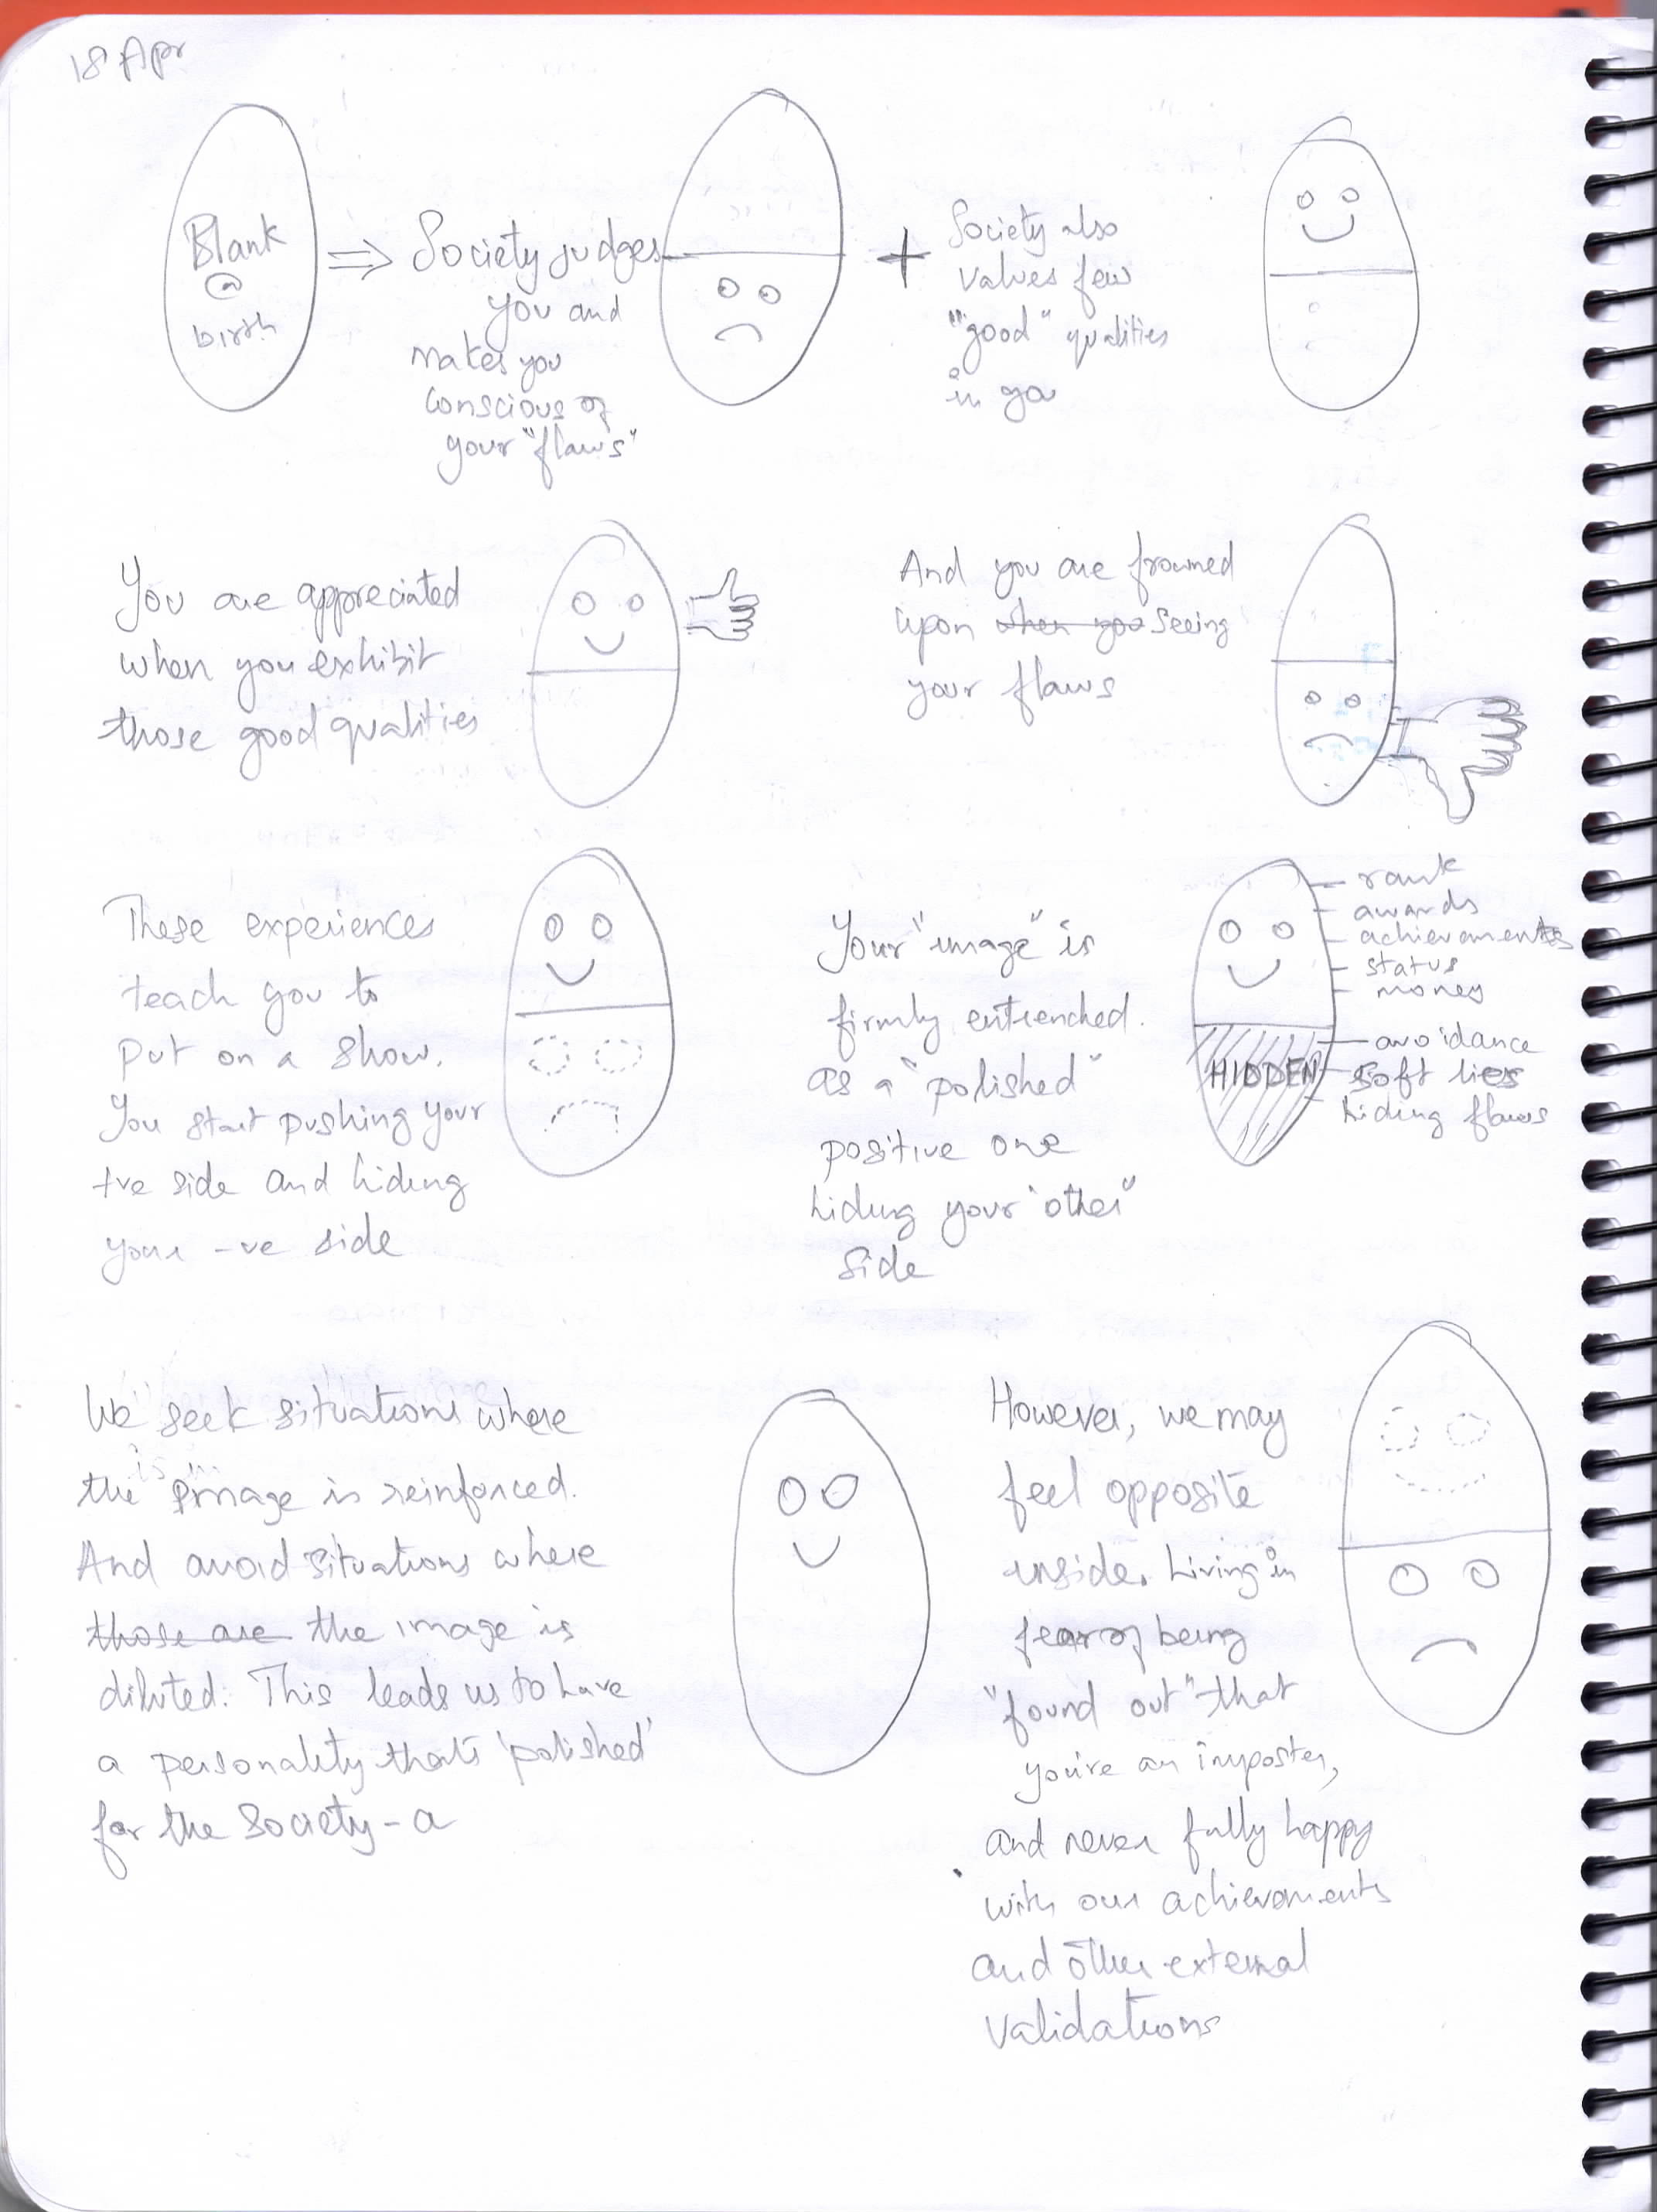 18 Apr
Blank
@
birth
⇒
Society judges
you and
makes you
conscious of
your "flaws"
+
Society also
values few
"good" qualities
in you
You are appreciated
when you exhibit
those good qualities
And you are frowned
upon when you seeing
your flaws
These experiences
teach you to
put on a show.
You start pushing your
+ve side and hiding
your -ve side
Your "image" is
firmly entrenched.
as a "polished"
positive one
hiding your "other"
side
rank
awards
achievements
status
money
HIDDEN
avoidance
soft lies
hiding flaws
We seek situations where
the image is reinforced.
And avoid situations where
those are the image is
diluted. This leads us to have
a personality that's 'polished'
for the society - a
However, we may
feel opposite
inside. Living in
fear of being
"found out" that
you're an imposter,
and never fully happy
with our achievements
and other external
validations